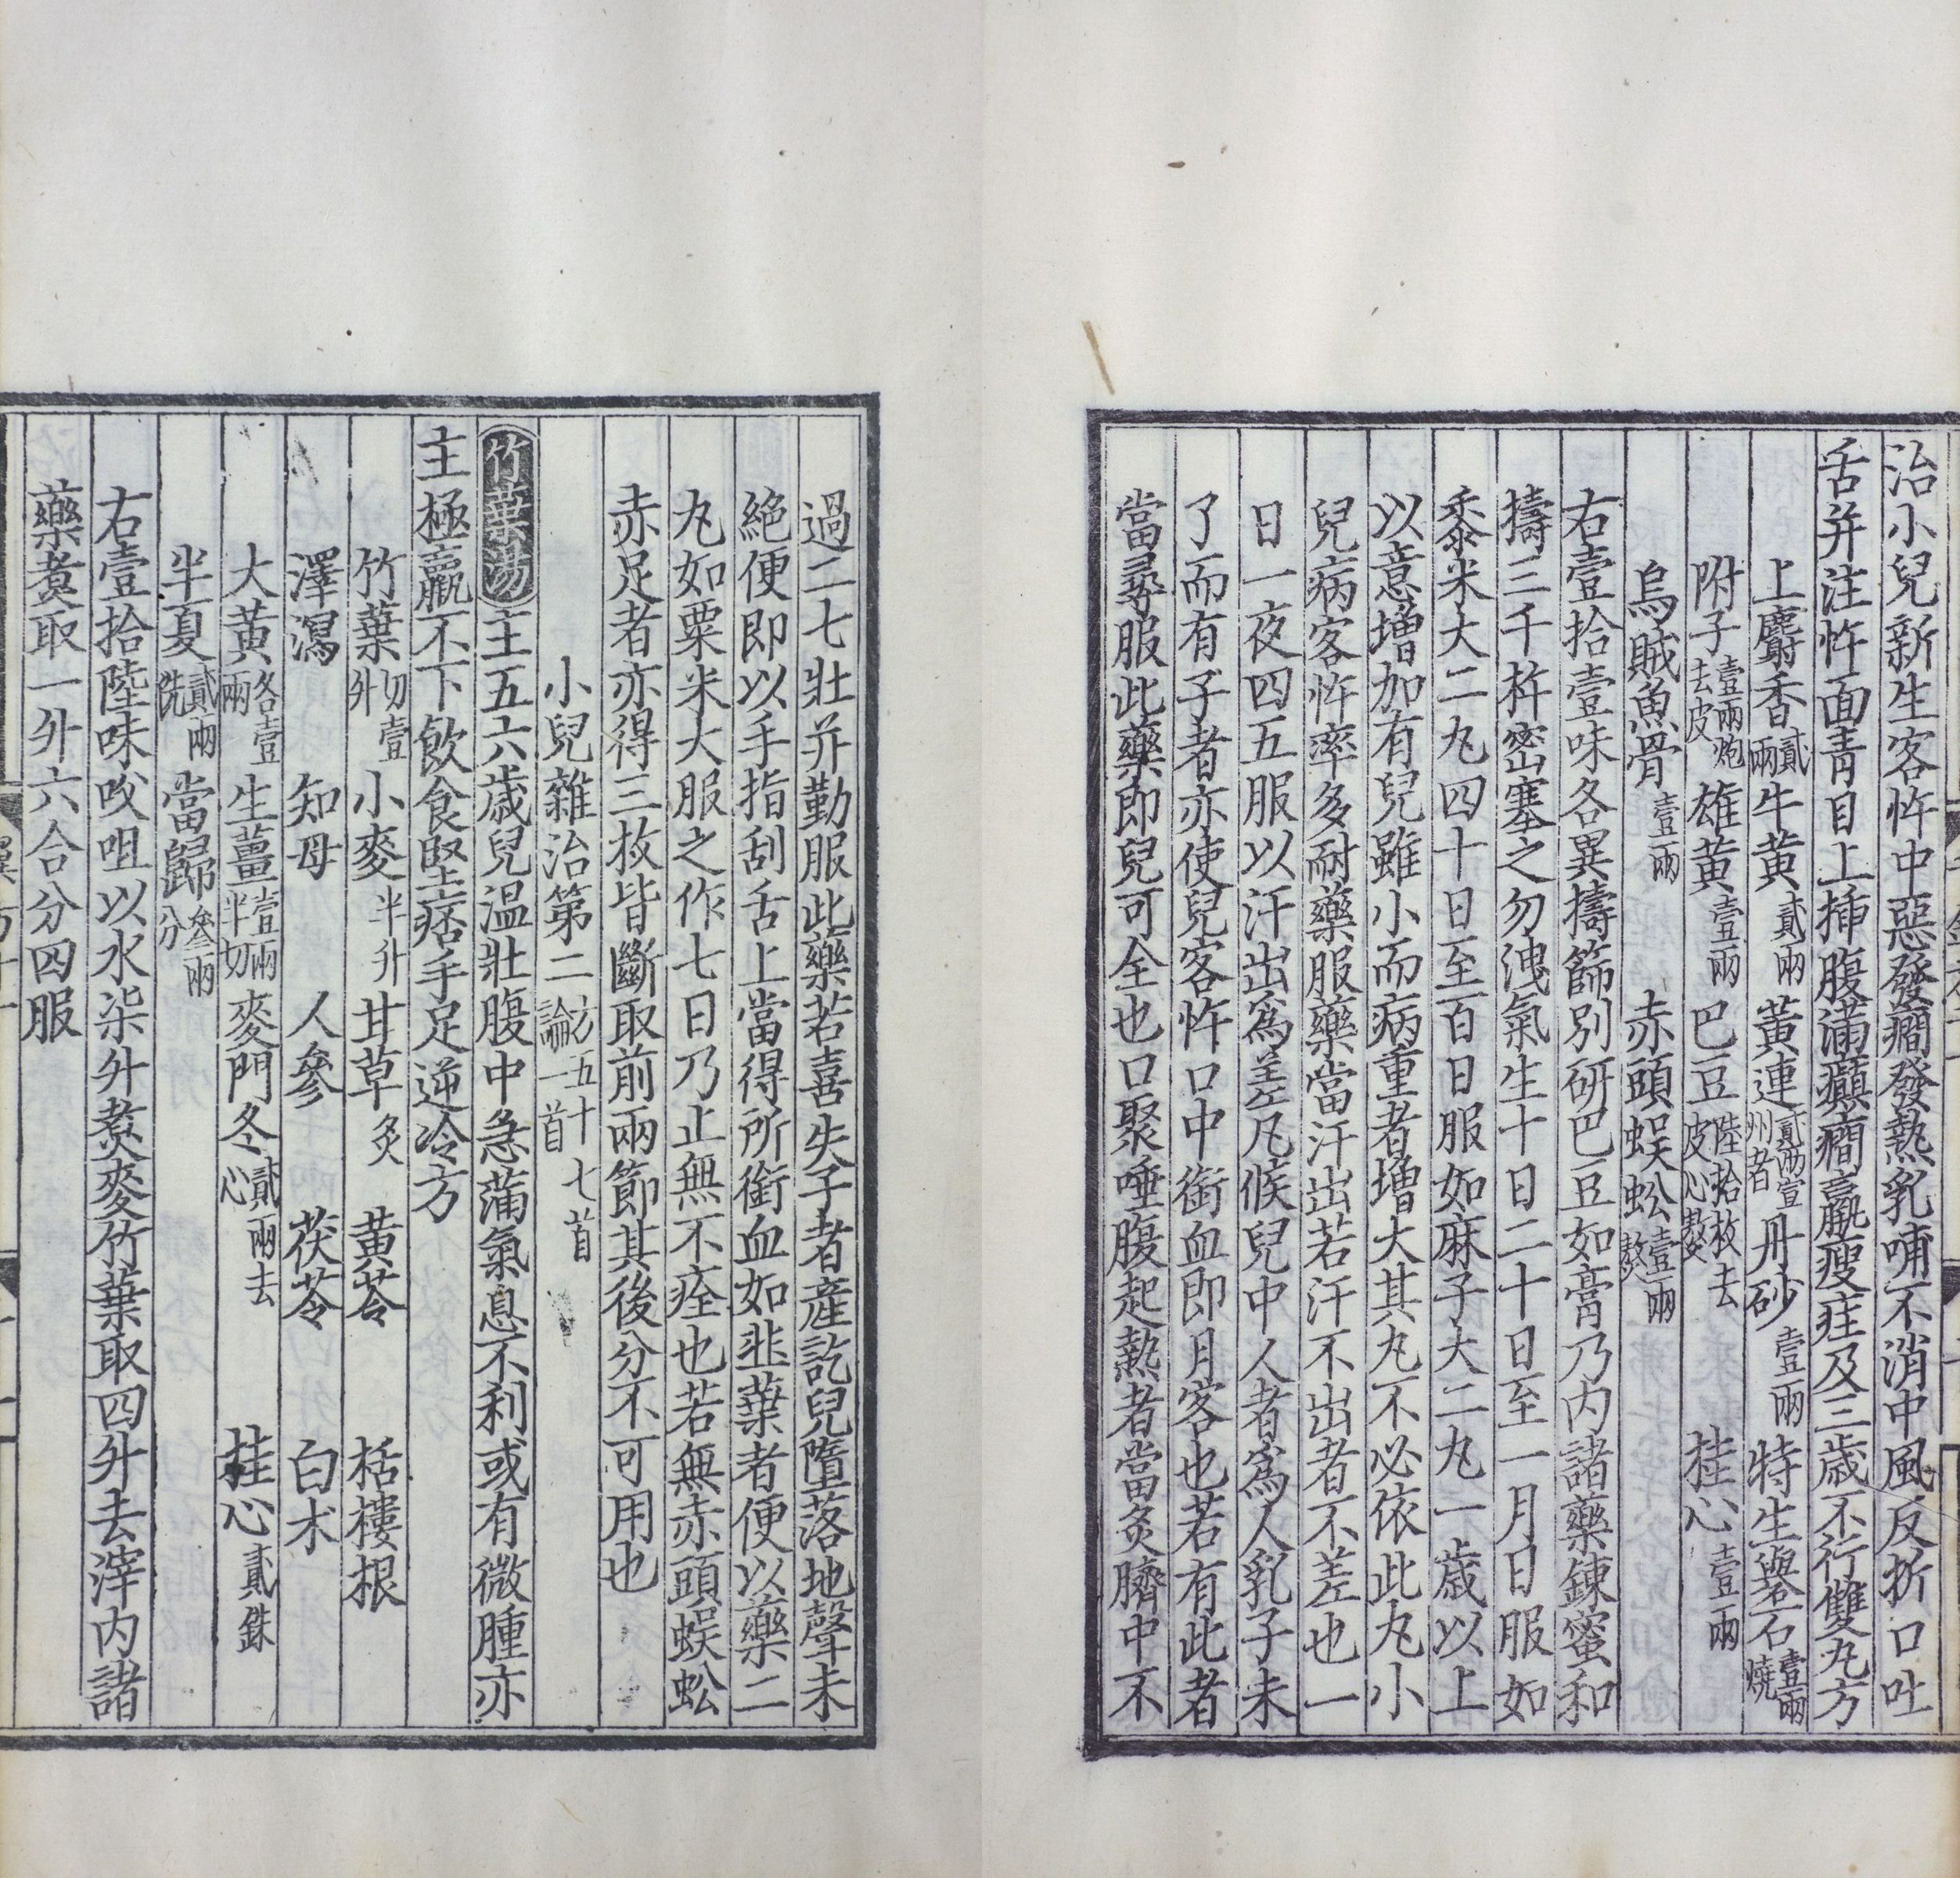 治小兒新生客忤中惡發癇發熱乳哺不消中風反折口吐
舌并注忤面青目上插腹滿癲癇羸瘦疰及三歲不行雙丸方
上麝香貳兩牛黃貳兩黃連貳兩宣州者丹砂壹兩特生礜石壹兩燒
附子壹兩炮去皮雄黃壹兩巴豆陸拾枚去皮心熬桂心壹兩
烏賊魚骨壹兩赤頭蜈蚣壹兩熬
右壹拾壹味各異擣篩別研巴豆如膏乃內諸藥鍊蜜和
擣三千杵密塞之勿洩氣生十日二十日至一月日服如
黍米大二丸四十日至百日服如麻子大二丸一歲以上
以意增加有兒雖小而病重者增大其丸不必依此丸小
兒病客忤率多耐藥服藥當汗出若汗不出者不差也一
日一夜四五服以汗出為差凡候兒中人者為人乳子未
了而有子者亦使兒客忤口中銜血即月客也若有此者
當尋服此藥即兒可全也口聚唾腹起熱者當灸臍中不
過二七壯并勤服此藥若喜失子者產訖兒墮落地聲未
絕便即以手指刮舌上當得所銜血如韭葉者便以藥二
丸如粟米大服之作七日乃止無不痊也若無赤頭蜈蚣
赤足者亦得三枚皆斷取前兩節其後分不可用也
小兒雜治第二方五十七首論一首
竹葉湯主五六歲兒溫壯腹中急滿氣息不利或有微腫亦
主極羸不下飲食堅痞手足逆冷方
竹葉切壹升小麥半升甘草炙黃芩栝樓根
澤瀉知母人參茯苓白朮
大黃各壹兩生薑壹兩半切麥門冬貳兩去心桂心貳銖
半夏貳兩洗當歸參兩分
右壹拾陸味㕮咀以水柒升煮麥竹葉取四升去滓內諸
藥煮取一升六合分四服